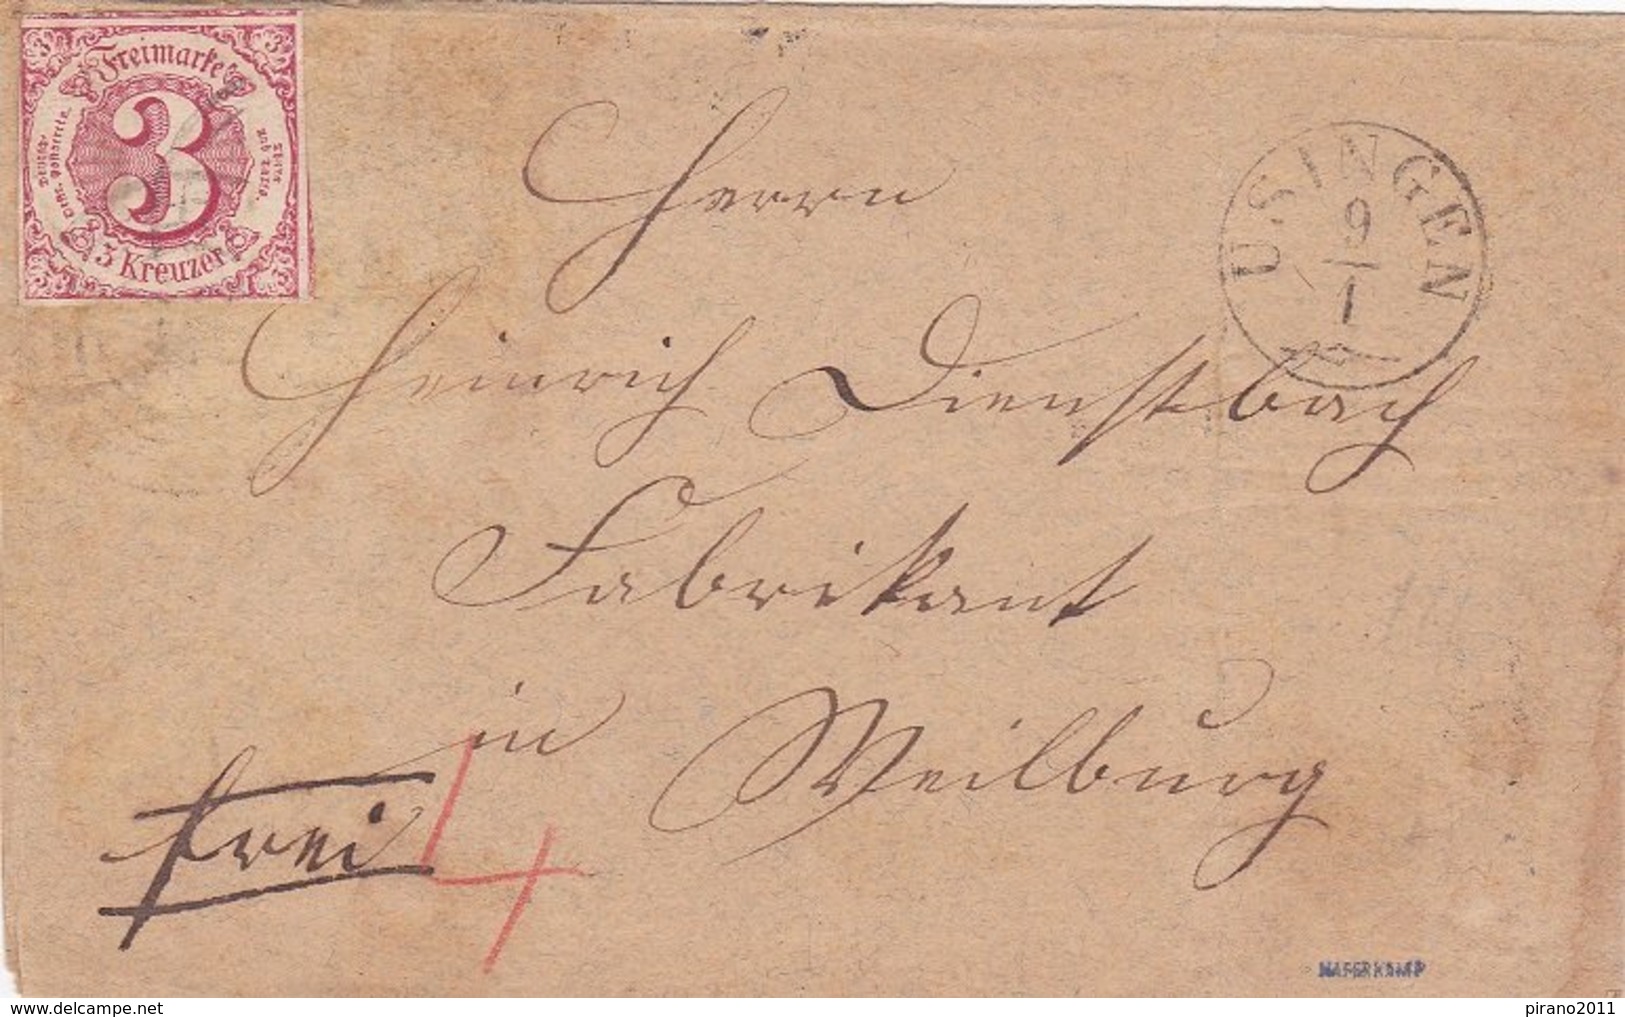 3 3
Freimarke
Deutsch-
Oestr. Postverein.
Thurn
und Taxis.
3
3 Kreuzer
3 3
USINGEN
9
1
Herrn
Heinrich Dienstbach
Fabrikant
in Weilburg
frei
4
HAFERKAMP
www.delcampe.net
pirano2011